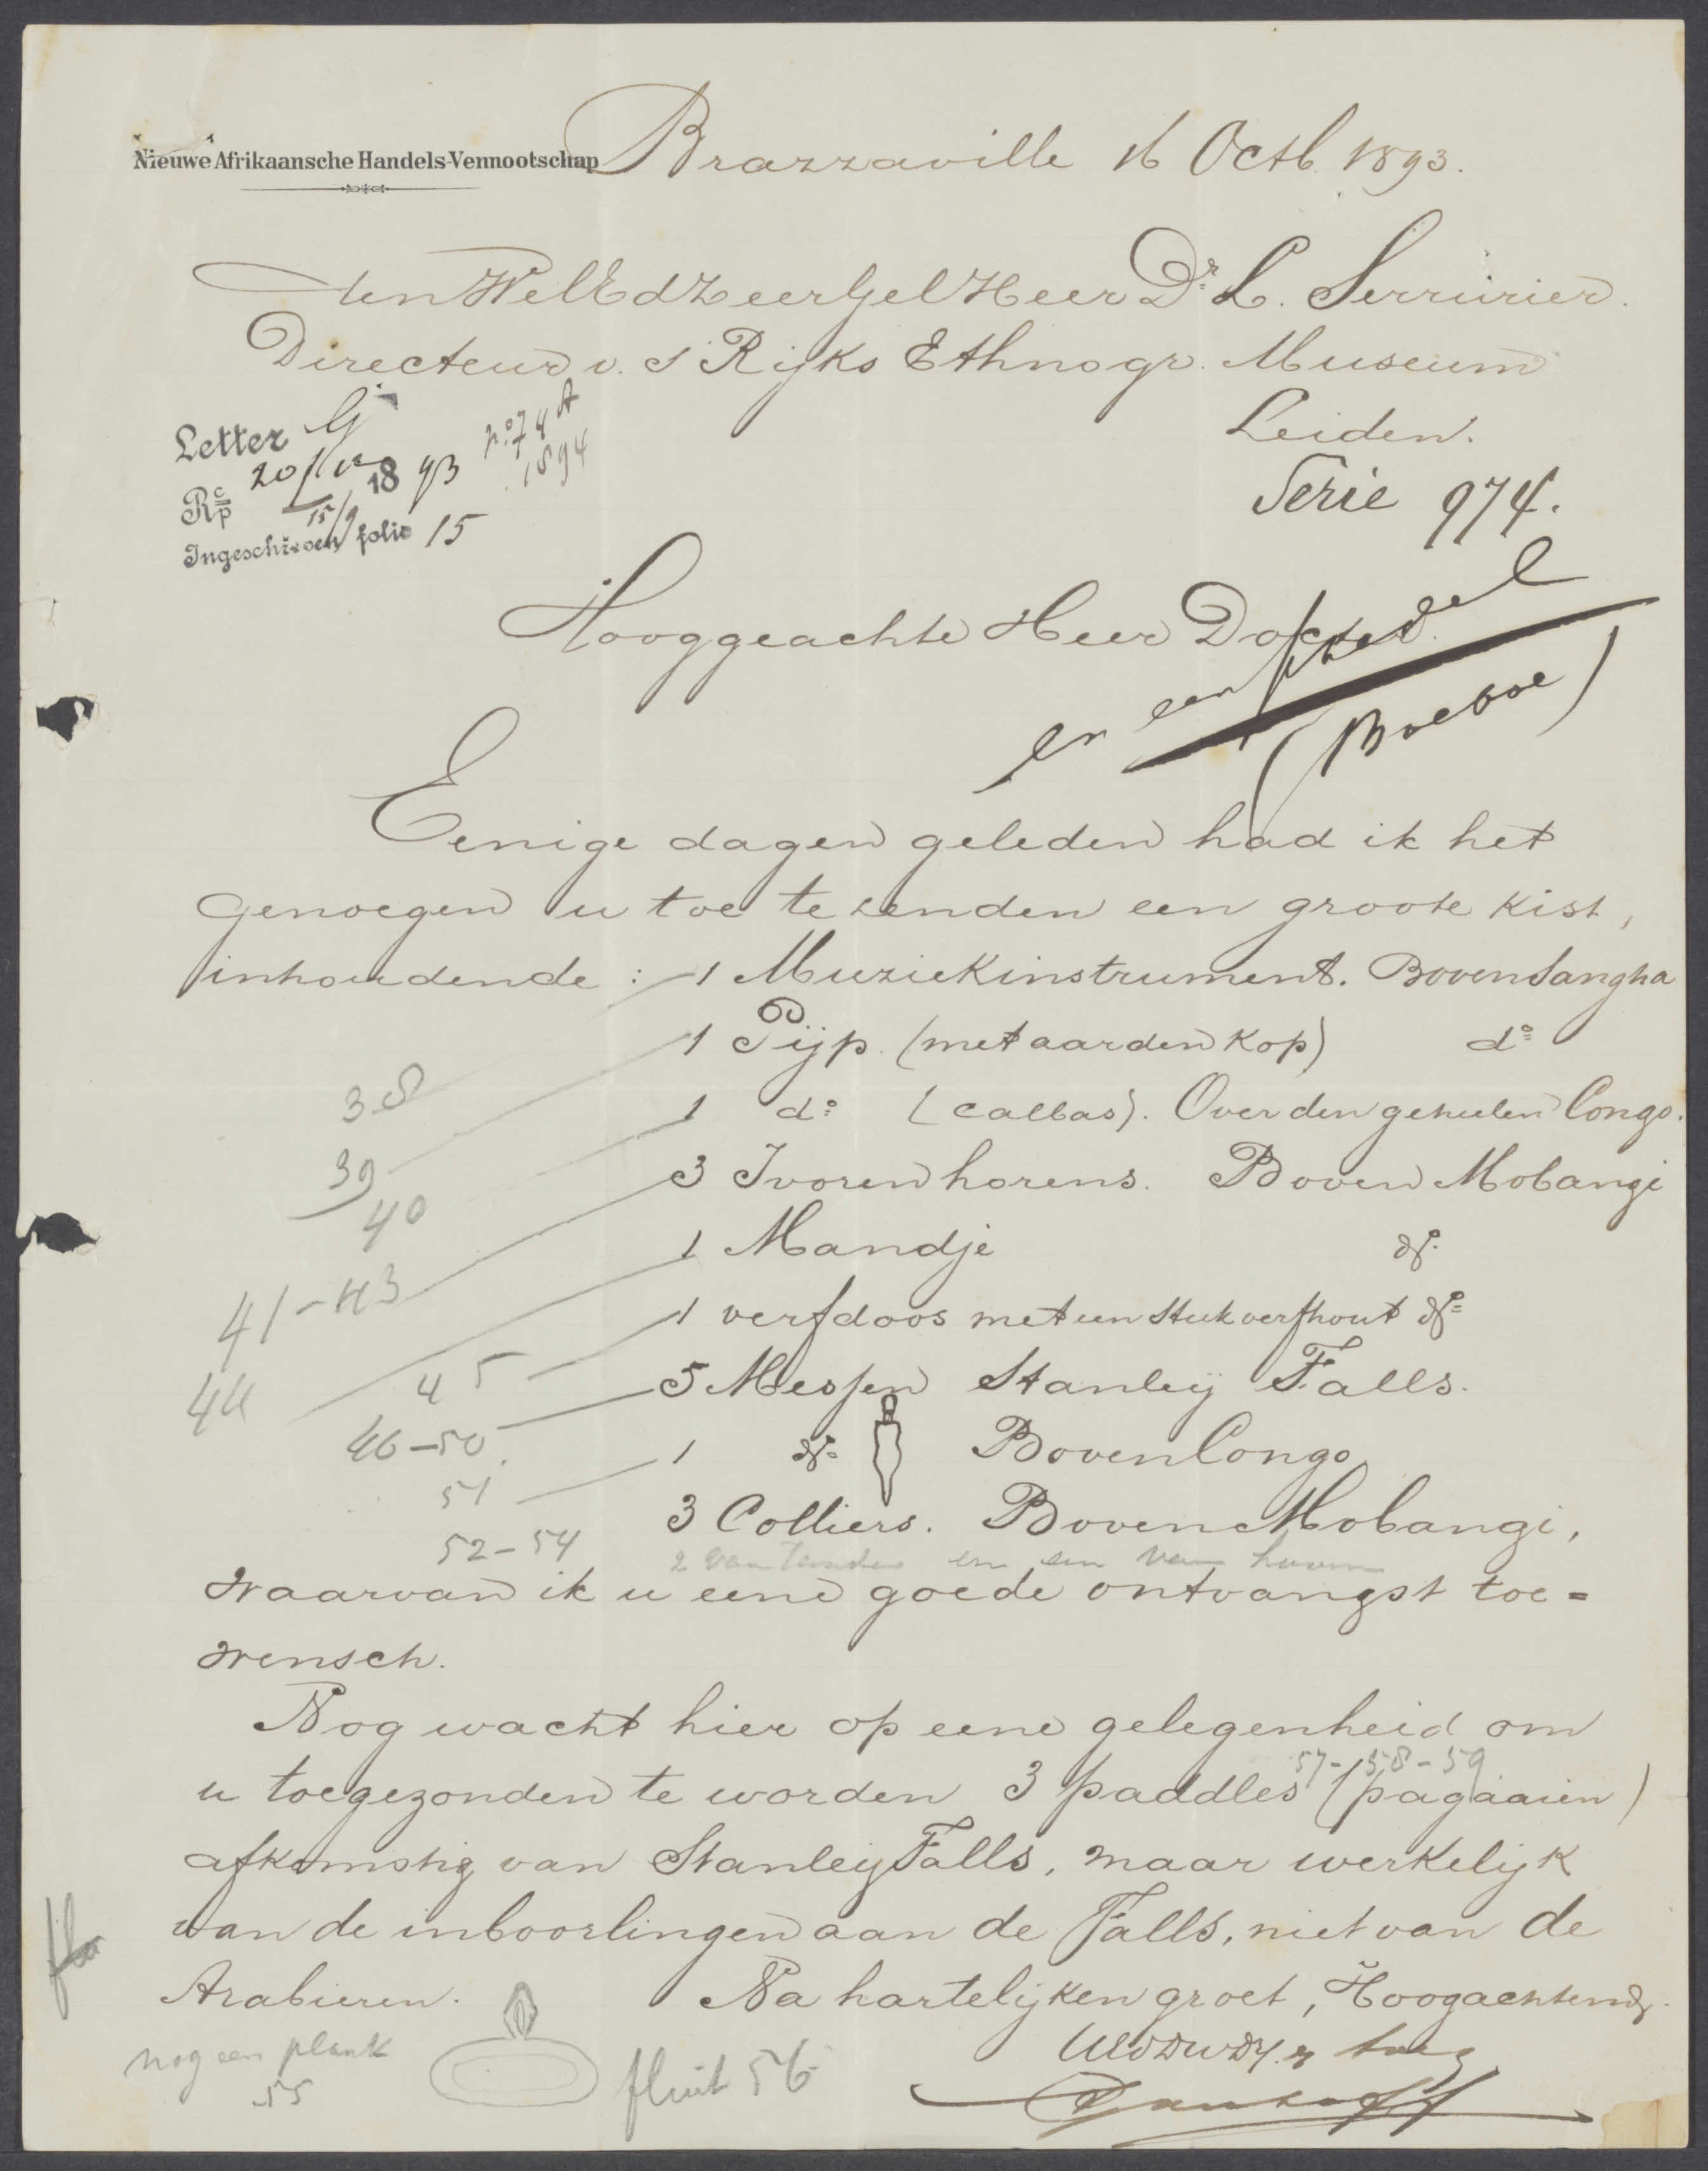 Nieuwe Afrikaansche Handels-Vennootschap
Brazzaville 16 Octb. 1893.
den WelEdZeerGel Heer Dr. L. Serrurier.
Directeur v. 's Rijks Ethnogr. Museum
Leiden.
Letter G
Rc/p 20/12 1893 no. 74 A
1894
15/9
Ingeschreven folio 15
Serie 974.
Hooggeachte Heer Doctor.
en een schedel
(Boeboe)
Eenige dagen geleden had ik het
genoegen u toe te zenden een groote kist,
inhoudende : 1 Muziekinstrument. Boven Sangha
38
1 Pijp. (met aarden kop) do
39
1 do (calbas). Over den geheelen Congo.
40
3 Ivoren horens. Boven Mobangi
41-43
1 Mandje do
44
1 verfdoos met een stuk verfhout do
45
5 Messen Stanley Falls.
46-50
1 do Boven Congo
51
3 Colliers. Boven Mobangi,
52-54
2 van tanden en een van hoorn
waarvan ik u eene goede ontvangst toe=
wensch.
Nog wacht hier op eene gelegenheid om
57-58-59
u toegezonden te worden 3 paddles (pagaaien)
afkomstig van Stanley Falls, maar werkelijk
van de inboorlingen aan de Falls, niet van de
Arabieren. Na hartelijken groet, Hoogachtend.
UEdDwDr.
nog een plank
55
fluit 56